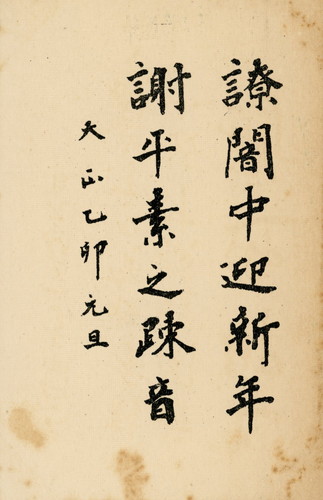 諒闇中迎新年
謝平素之疎音
大正乙卯元旦